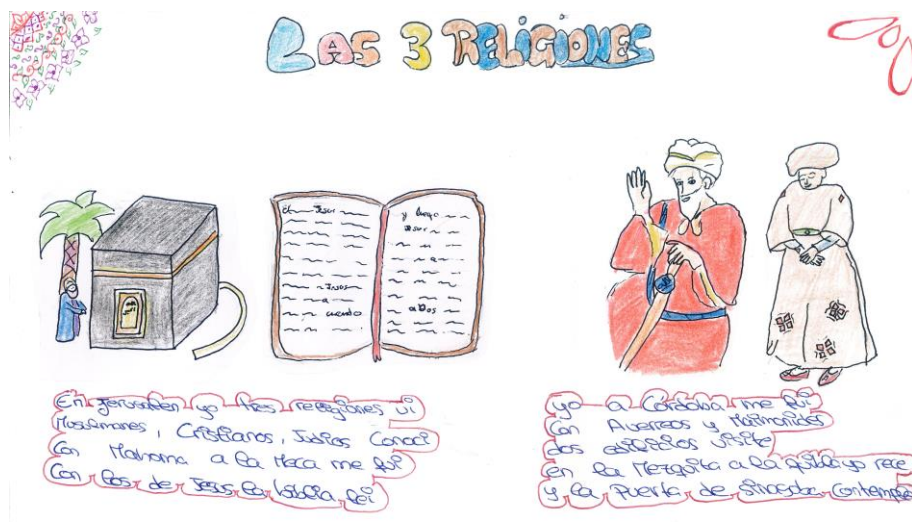 LAS 3 RELIGIONES
El Jesus
Jesus
a
cuando
y luego
Jesus
a
a Dos
En Jerusalen yo tres religiones vi
Musulmanes, Cristianos, Judios Conoci
Con Mahoma a la Meca me fui
Con los de Jesus la biblia lei
yo a Córdoba me fui
Con Averroes y Maimonides
dos edificios visite
en la Mezquita a la quibla yo rece
y la Puerta de sinagoga contemple